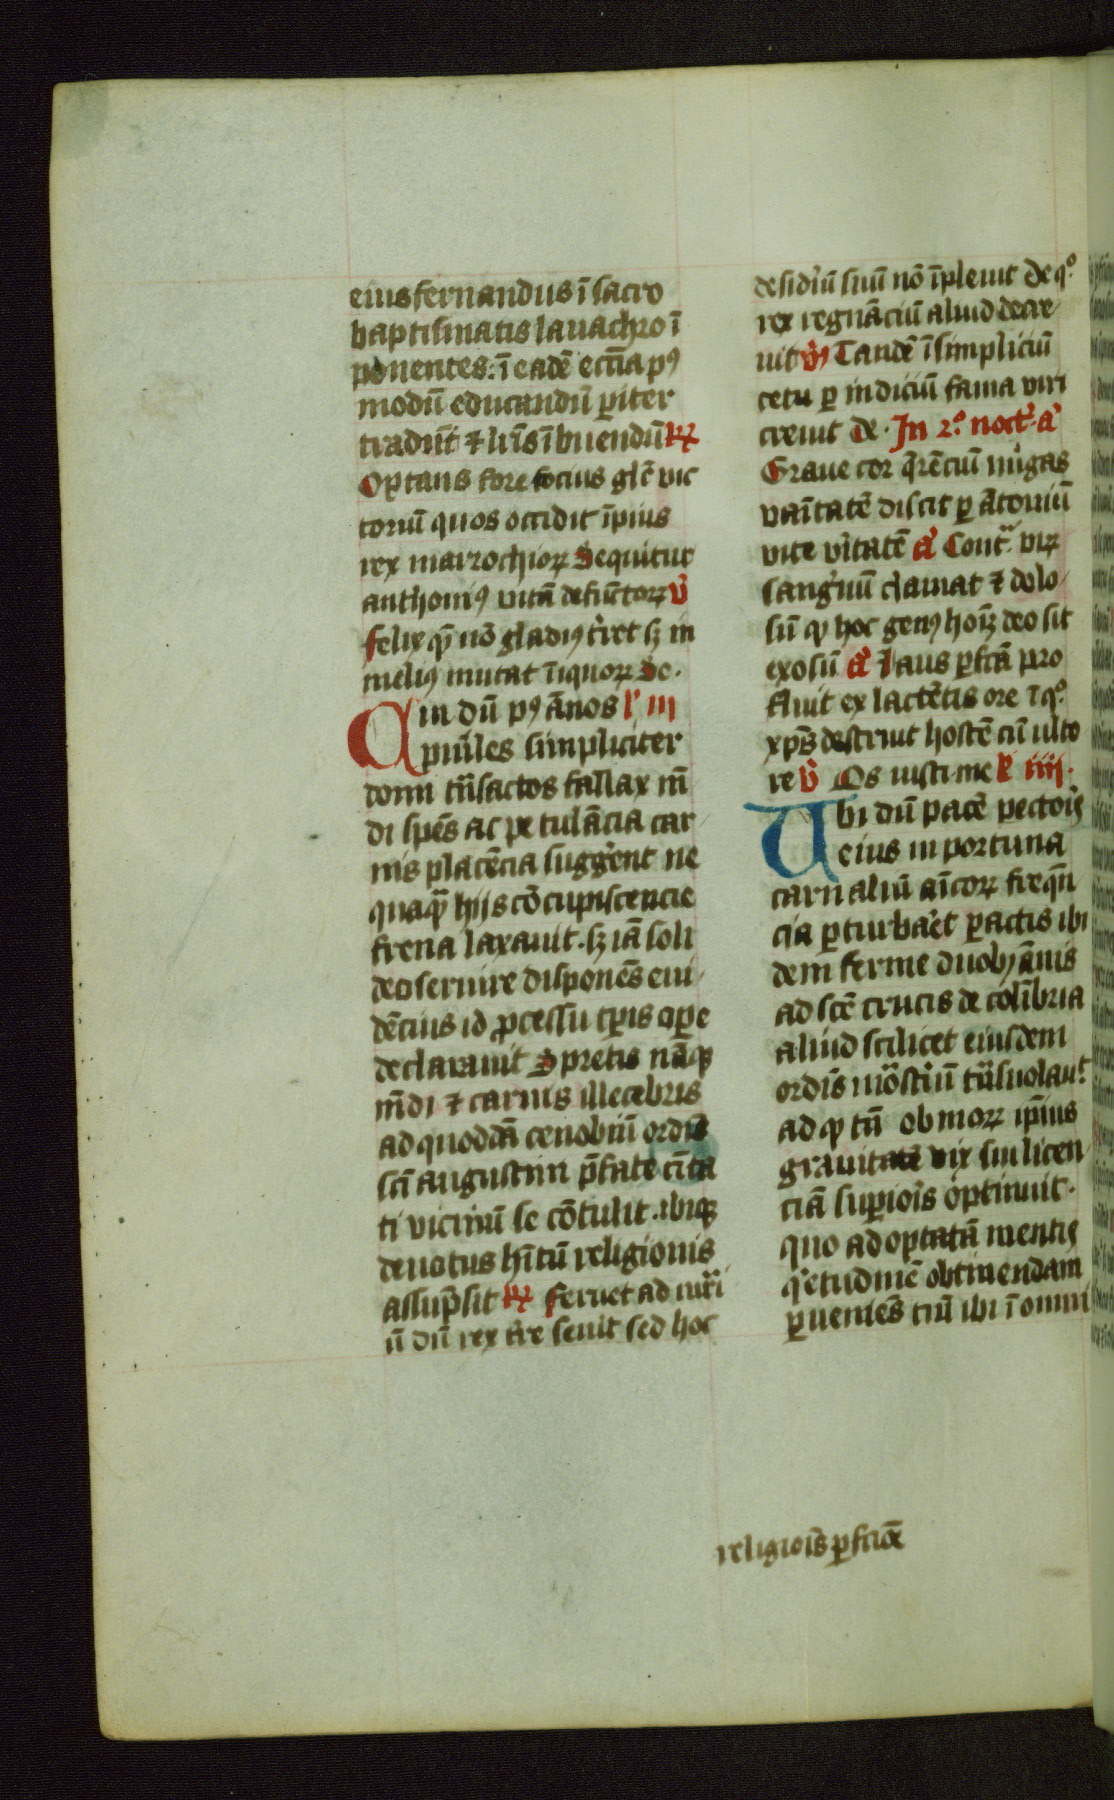 eius fernandus ī sacro
baptismatis lauachro ī
ponentes. ī eadē eccīa pꝰ
modū educandū ꝑiter
tradūt ⁊ lr̄is ībuendū R
Optans fore socius gl'e vic
torum quos occidit īpius
rex marrochioꝝ Sequitur
anthoniꝰ vitā defūctoꝝ v̾
felix qē nō gladiꝰ t'ret sꝫ in
meliꝰ mutat īiquoꝝ Se.
Qui dū pꝰ ānos l' iii
pueriles simpliciter
domi trāsactos fallax mū
di spēs ac petulācia car
nis placēcia sugg'ent ne
quaqᷓ hijs cōcupiscencie
frena laxauit. sꝫ iā soli
deo seruire disponēs eui
dēcius id ꝓcessu tꝑis oꝑe
declarauit Spretis nāqꝫ
mūdi ⁊ carnis illecebris
ad quoddā cenobiū ordis
scī augustini p̄fate cīta
ti vicinū se cōtulit. ibiqꝫ
deuotus hītū religionis
assūpsit R feruet ad m̄ri
ū dū rex fre seuit sed hoc
desid'iū suū nō īpleuit de qº
rex regnāciū aliud decre
uit v̾s Tandē ī simpliciū
cetu ꝑ indiciū fama viri
creuit De. In 2º noct' a'
Graue cor q̄rēciū nugas
vanitatē discit ꝑ ātoniū
vite v'itatē a' Contᷓ virꝫ
sang'nū clamat ⁊ dolo
sū qꝫ hoc genꝰ hoīꝫ deo sit
exosū a' laus ꝑfcā pro
fluit ex lactētis ore ī qº
xp̄s destruit hostē cū ulto
re v̾ Os iusti me l' iiii.
Ubi dū pacē pectoris
eius inportuna
carnaliū amicoꝝ freqn̄
cia ꝑturbar̄et ꝑactis ibi
dem ferme duobꝫ ānis
ad scē crucis de colībria
aliud scilicet eiusdem
ordis mōst'iū trāsuolauit
ad qꝫ tū ob moꝝ ipīus
grauitatē vix sui licen
ciā suꝑioris optinuit.
quo ad optatā mentis
q'etudinē obtinendam
ꝑueniēs cū ibi ī omni
religiōis ꝑfcīōe